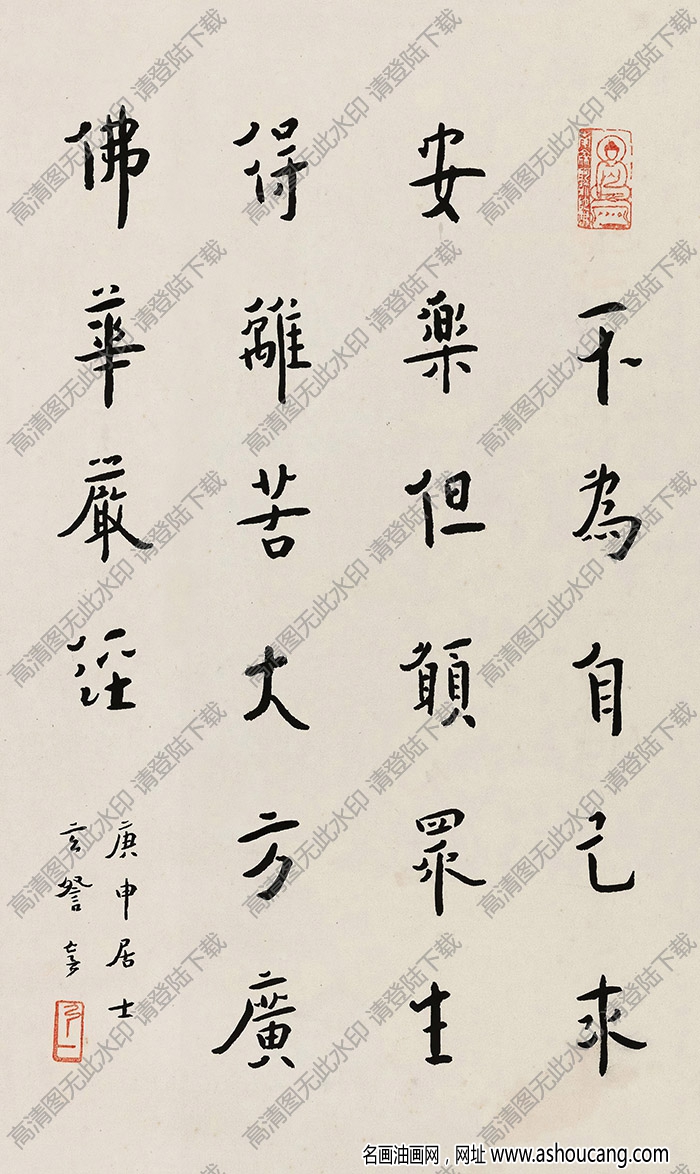 不為自己求
安樂但願眾生
得離苦大方廣
佛華嚴經
庚申居士
玄詧書
高清图无此水印 请登陆下载
名画油画网，网址 www.ashoucang.com